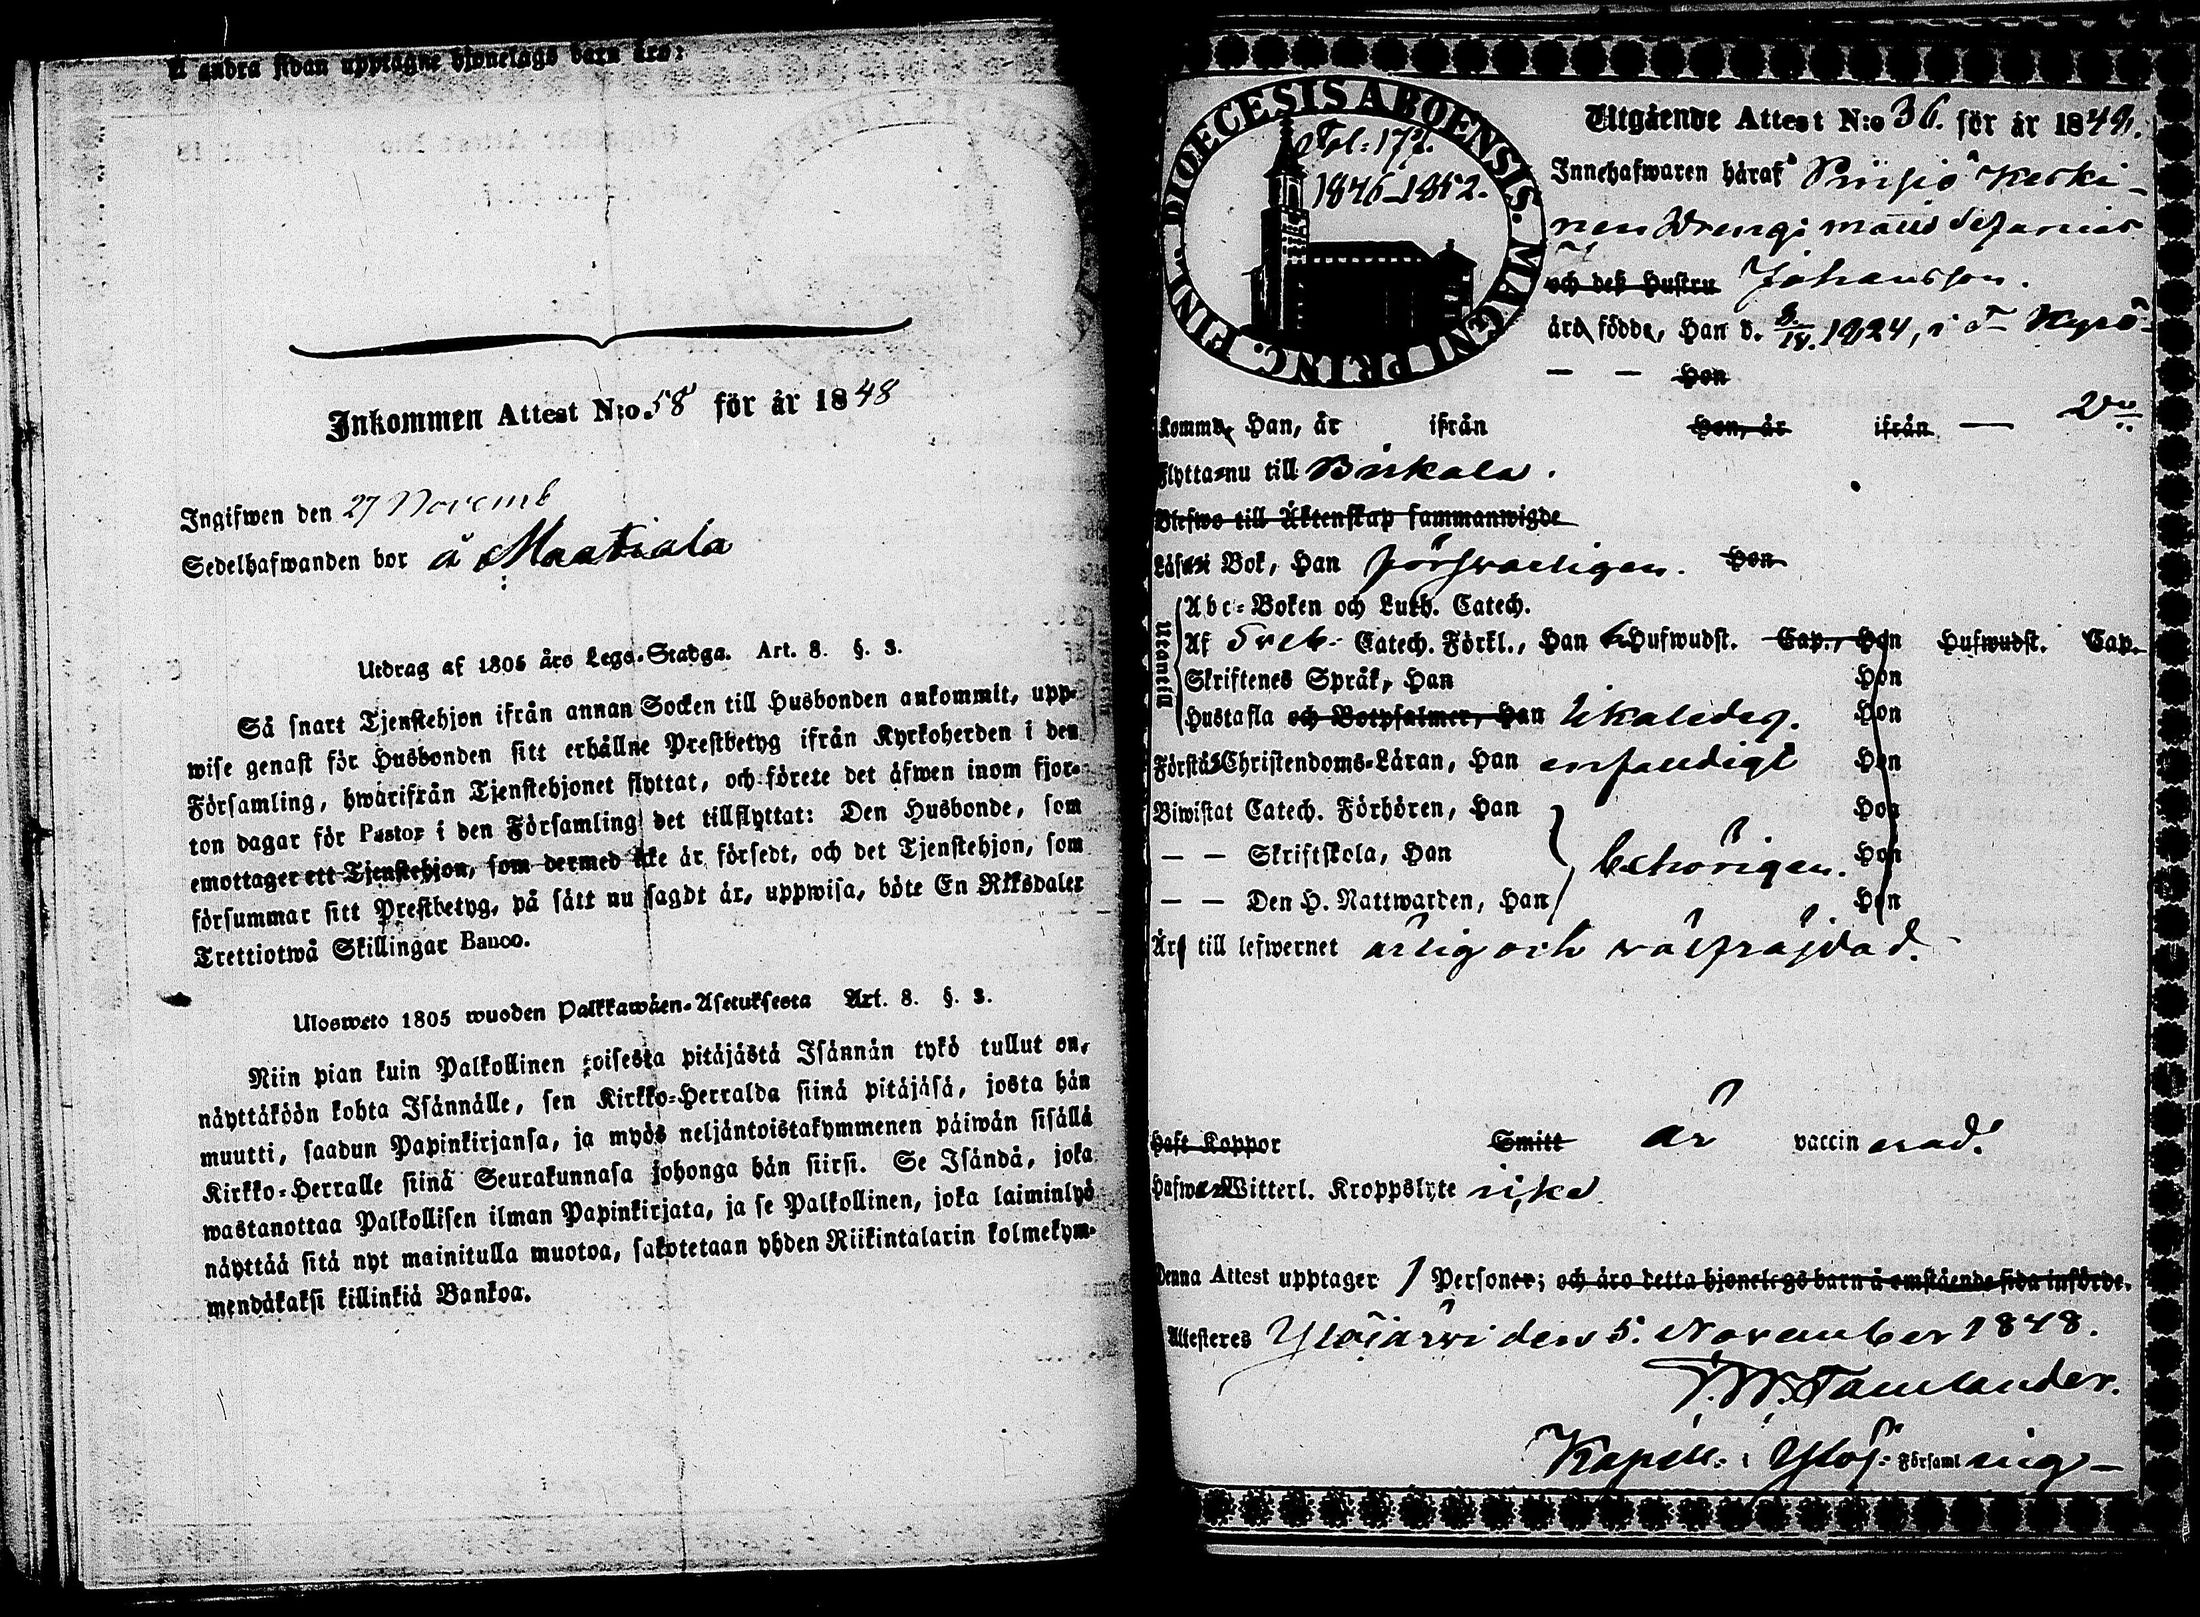 å andra sidan upptagne hjonelags barn äro:
Inkommen Attest N:o 58 för år 1848
Ingifwen den 27 Novemb
Sedelhafwanden bor å Maatiala
Utdrag af 1805 års Lego-Stadga. Art. 8. §. 3.
Så snart Tjenstehjon ifrån annan Socken till Husbonden ankommit, upp-
wise genast för Husbonden sitt erhållne Prestbetyg ifrån Kyrkoherden i den
Församling, hwarifrån Tjenstehjonet flyttat, och förete det äfwen inom fjor-
ton dagar för Pastor i den Församling det tillflyttat: Den Husbonde, som
emottager ett Tjenstehjon, som dermed icke är försedt, och det Tjenstehjon, som
försummar sitt Prestbetyg, på sätt nu sagdt är, uppwisa, böte En Riksdaler
Trettiotwå Skillingar Banco.
Ulosweto 1805 wuoden Palkkawäen-Asetuksesta Art. 8. §. 3.
Niin pian kuin Palkollinen toisesta pitäjästä Isännän tykö tullut on,
näyttäköön kohta Isännälle, sen Kirkko-Herralda siinä pitäjäsä, josta hän
muutti, saadun Papinkirjansa, ja myös neljäntoistakymmenen päiwän sisällä
Kirkko-Herralle siinä Seurakunnasa johonga hän siirsi. Se Isändä, joka
wastanottaa Palkollisen ilman Papinkirjata, ja se Palkollinen, joka laiminlyö
näyttää sitä nyt mainitulla muotoa, sakotetaan yhden Riikintalarin kolmekym-
mendäkaksi killinkiä Bankoa.
DIOECESIS ABOENSIS. MAGNI PRINC. FINL.
Fol: 172.
1846-1852.
Utgående Attest N:o 36. för år 1848.
Innehafwaren häraf Keski-
nen Drengs
och deß Hustru Johansson.
äro födde, Han d. 1824, i T Kyrö
— — Hon
Komme Han, år ifrån Hon, år ifrån —
Flytta nu till Birkala.
Blefwo till Äktenskap sammanwigde
Läsa i Bok, Han försvarligen. Hon
Utantill
Abc-Boken och Luth. Catech.
Af Catech. Förkl., Han Hufwudst. Cap., Hon Hufwudst. Cap.
Skriftenes Språk, Han Hon
Hustafla och Botpsalmer, Han likaledes. Hon
Förstå Christendoms-Läran, Han enfaldigt Hon
Biwistat Catech. Förhören, Han Hon
— — Skriftskola, Han behörigen. Hon
— — Den H. Nattwarden, Han Hon
Äro till lefwernet ärlig och välfräjdad.
Haft Koppor Smitt är vaccinerad.
Hafwa Witterl. Kroppslyte icke
Denna Attest upptager 1 Personer; och äro detta hjonelags barn å omstående sida införde.
Attesteres Ylöjärvi den 5. November 1848.
Tamlander.
Kapell. i Ylöj: Församling